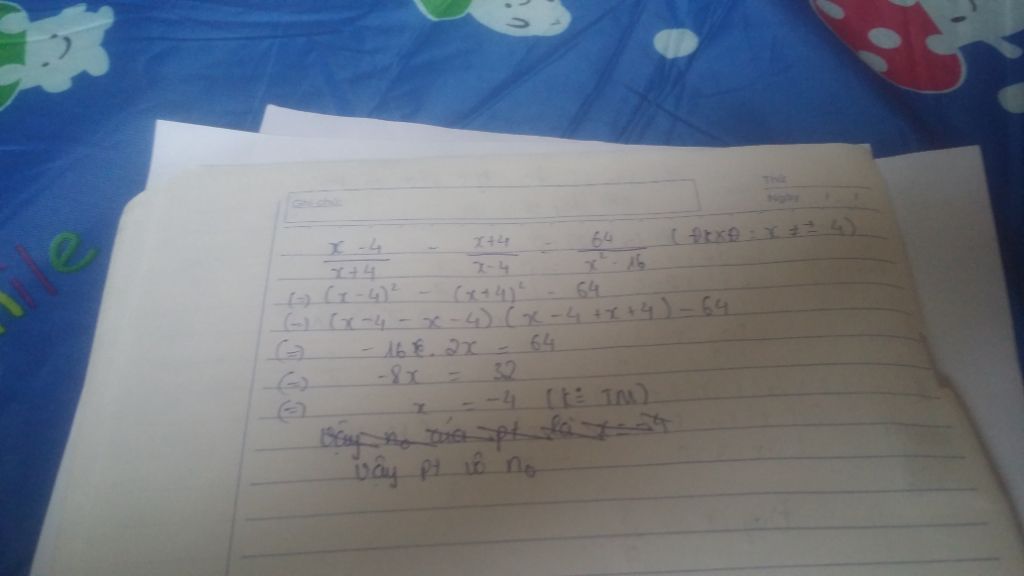 Thứ
Ghi chú:
Ngày / /
x-4/x+4 - x+4/x-4 = 64/x²-16 (ĐKXĐ: x ≠ ± 4)
(=) (x-4)² - (x+4)² = 64
(=) (x-4-x-4)(x-4+x+4) = 64
(=) 2x = 64
(=) -8x = 32
(=) x = -4 (K TM)
Vậy n₀ của pt là x = -4
Vậy pt vô n₀
mile